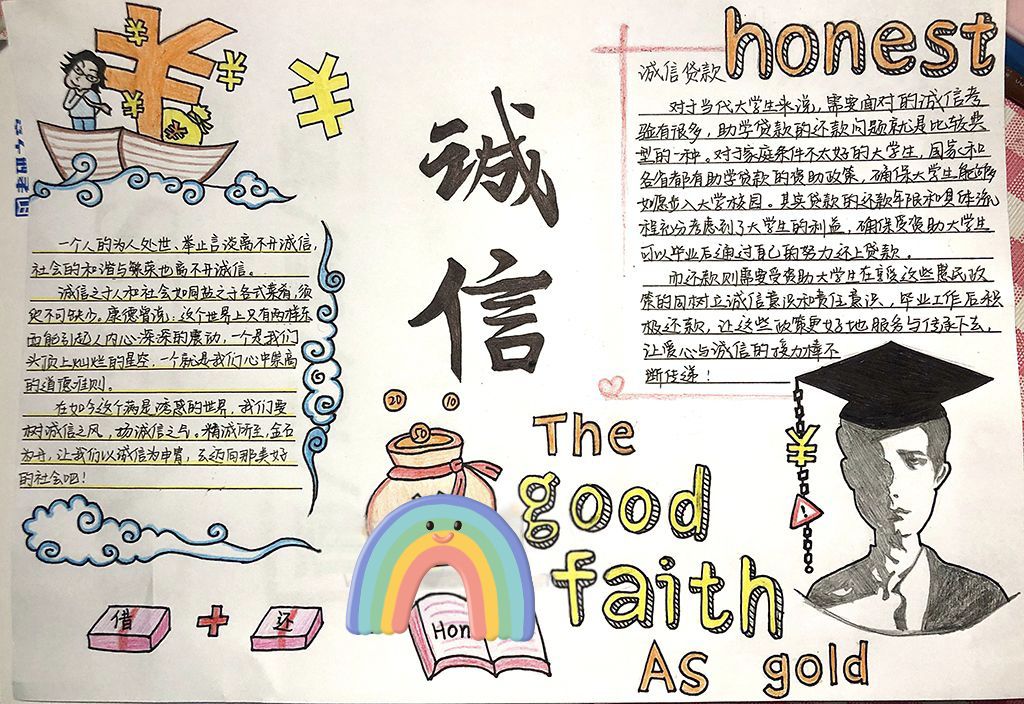 honest
诚信贷款
对于当代大学生来说，需要面对的诚信考
验有很多，助学贷款的还款问题就是比较典
型的一种。对于家庭条件不太好的大学生，国家和
各省都有助学贷款的资助政策，确保大学生能够
如愿步入大学校园。其实贷款的还款年限和具体流
程充分考虑到了大学生的利益，确保受资助大学生
可以毕业后通过自己的努力还上贷款。
而还款则需要受资助大学生在享受这些惠民政
策的同树立诚信意识和责任意识，毕业工作后积
极还款，让这些政策更好地服务与传承下去，
让爱心与诚信的接力棒不
断传递！
诚
信
一个人的为人处世、举止言谈离不开诚信，
社会的和谐与繁荣也离不开诚信。
诚信之于人和社会如同盐之于各式菜肴，须
臾不可缺少。康德曾说：这个世界上只有两样东
西能引起人内心深深的震动，一个是我们
头顶上灿烂的星空，一个就是我们心中崇高
的道德准则。
在如今这个满是诱惑的世界，我们要
树诚信之风，扬诚信之气。精诚所至，金石
为开，让我们以诚信为甲胄，去迈向那美好
的社会吧！
20
10
50
The
good
faith
As gold
借 + 还
Hon